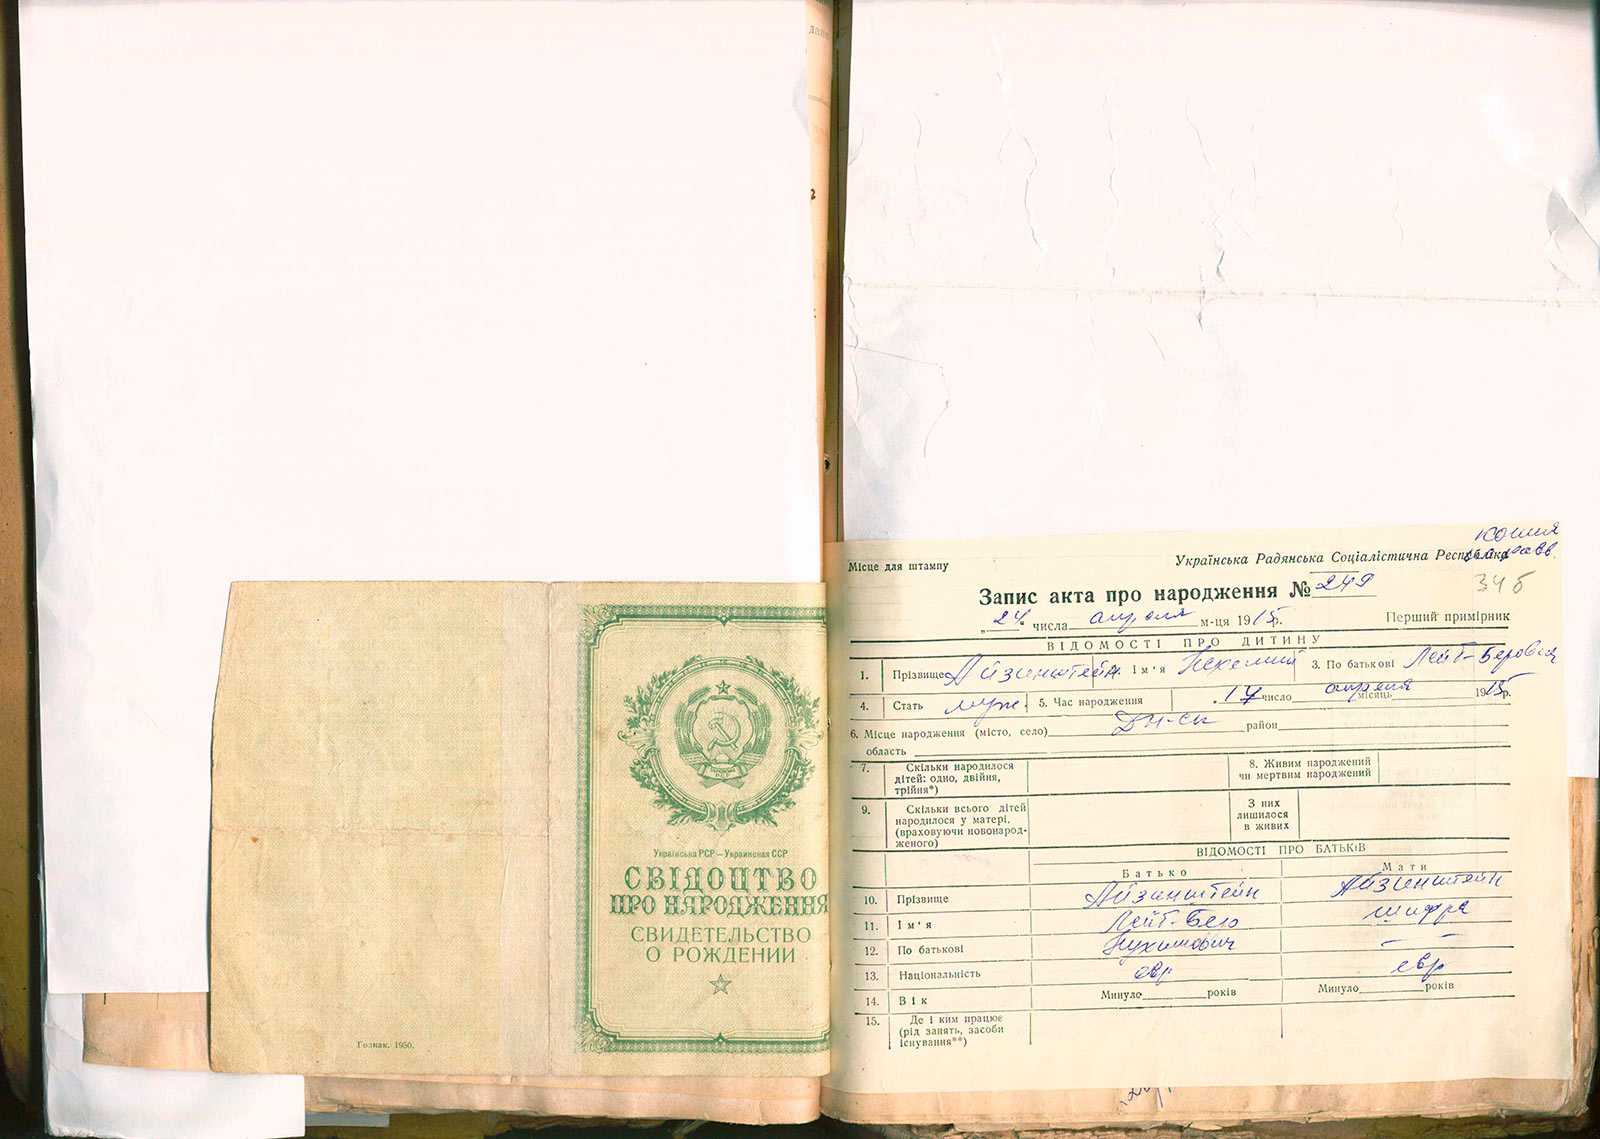 Українська РСР – Украинская ССР
СВІДОЦТВО
ПРО НАРОДЖЕННЯ
СВИДЕТЕЛЬСТВО
О РОЖДЕНИИ
Гознак. 1950.
копия
Місце для штампу
Українська Радянська Соціалістична Республіка
34б
Запис акта про народження № 249
„24“ числа апреля м-ця 1915р.
Перший примірник
ВІДОМОСТІ ПРО ДИТИНУ
1. Прізвище Айзенштейн 2. Ім'я Нехемий 3. По батькові Лейб-Берович
4. Стать муж. 5. Час народження „17 число апреля місяць 1915р.
6. Місце народження (місто, село) Дн-ск район
область
7. Скільки народилося дітей: одно, двійня, трійня*)
8. Живим народжений чи мертвим народжений
9. Скільки всього дітей народилося у матері, (враховуючи новонародженого)
З них лишилося в живих
ВІДОМОСТІ ПРО БАТЬКІВ
Батько Мати
10. Прізвище Айзенштейн Айзенштейн
11. Ім'я Лейб-Бер Шифра
12. По батькові Нухимович —
13. Національність евр евр
14. Вік Минуло років Минуло років
15. Де і ким працює (рід занять, засоби існування**)